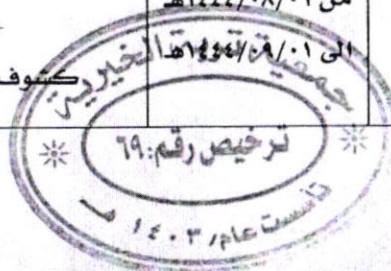 من ١٤٤٤/٠٨/٠١هـ
الى ١٤٤٤/٠٩/٠١هـ
كشوف
جمعية الخيرية
ترخيص رقم: ٦٩
تأسست عام ١٤٠٣ هـ